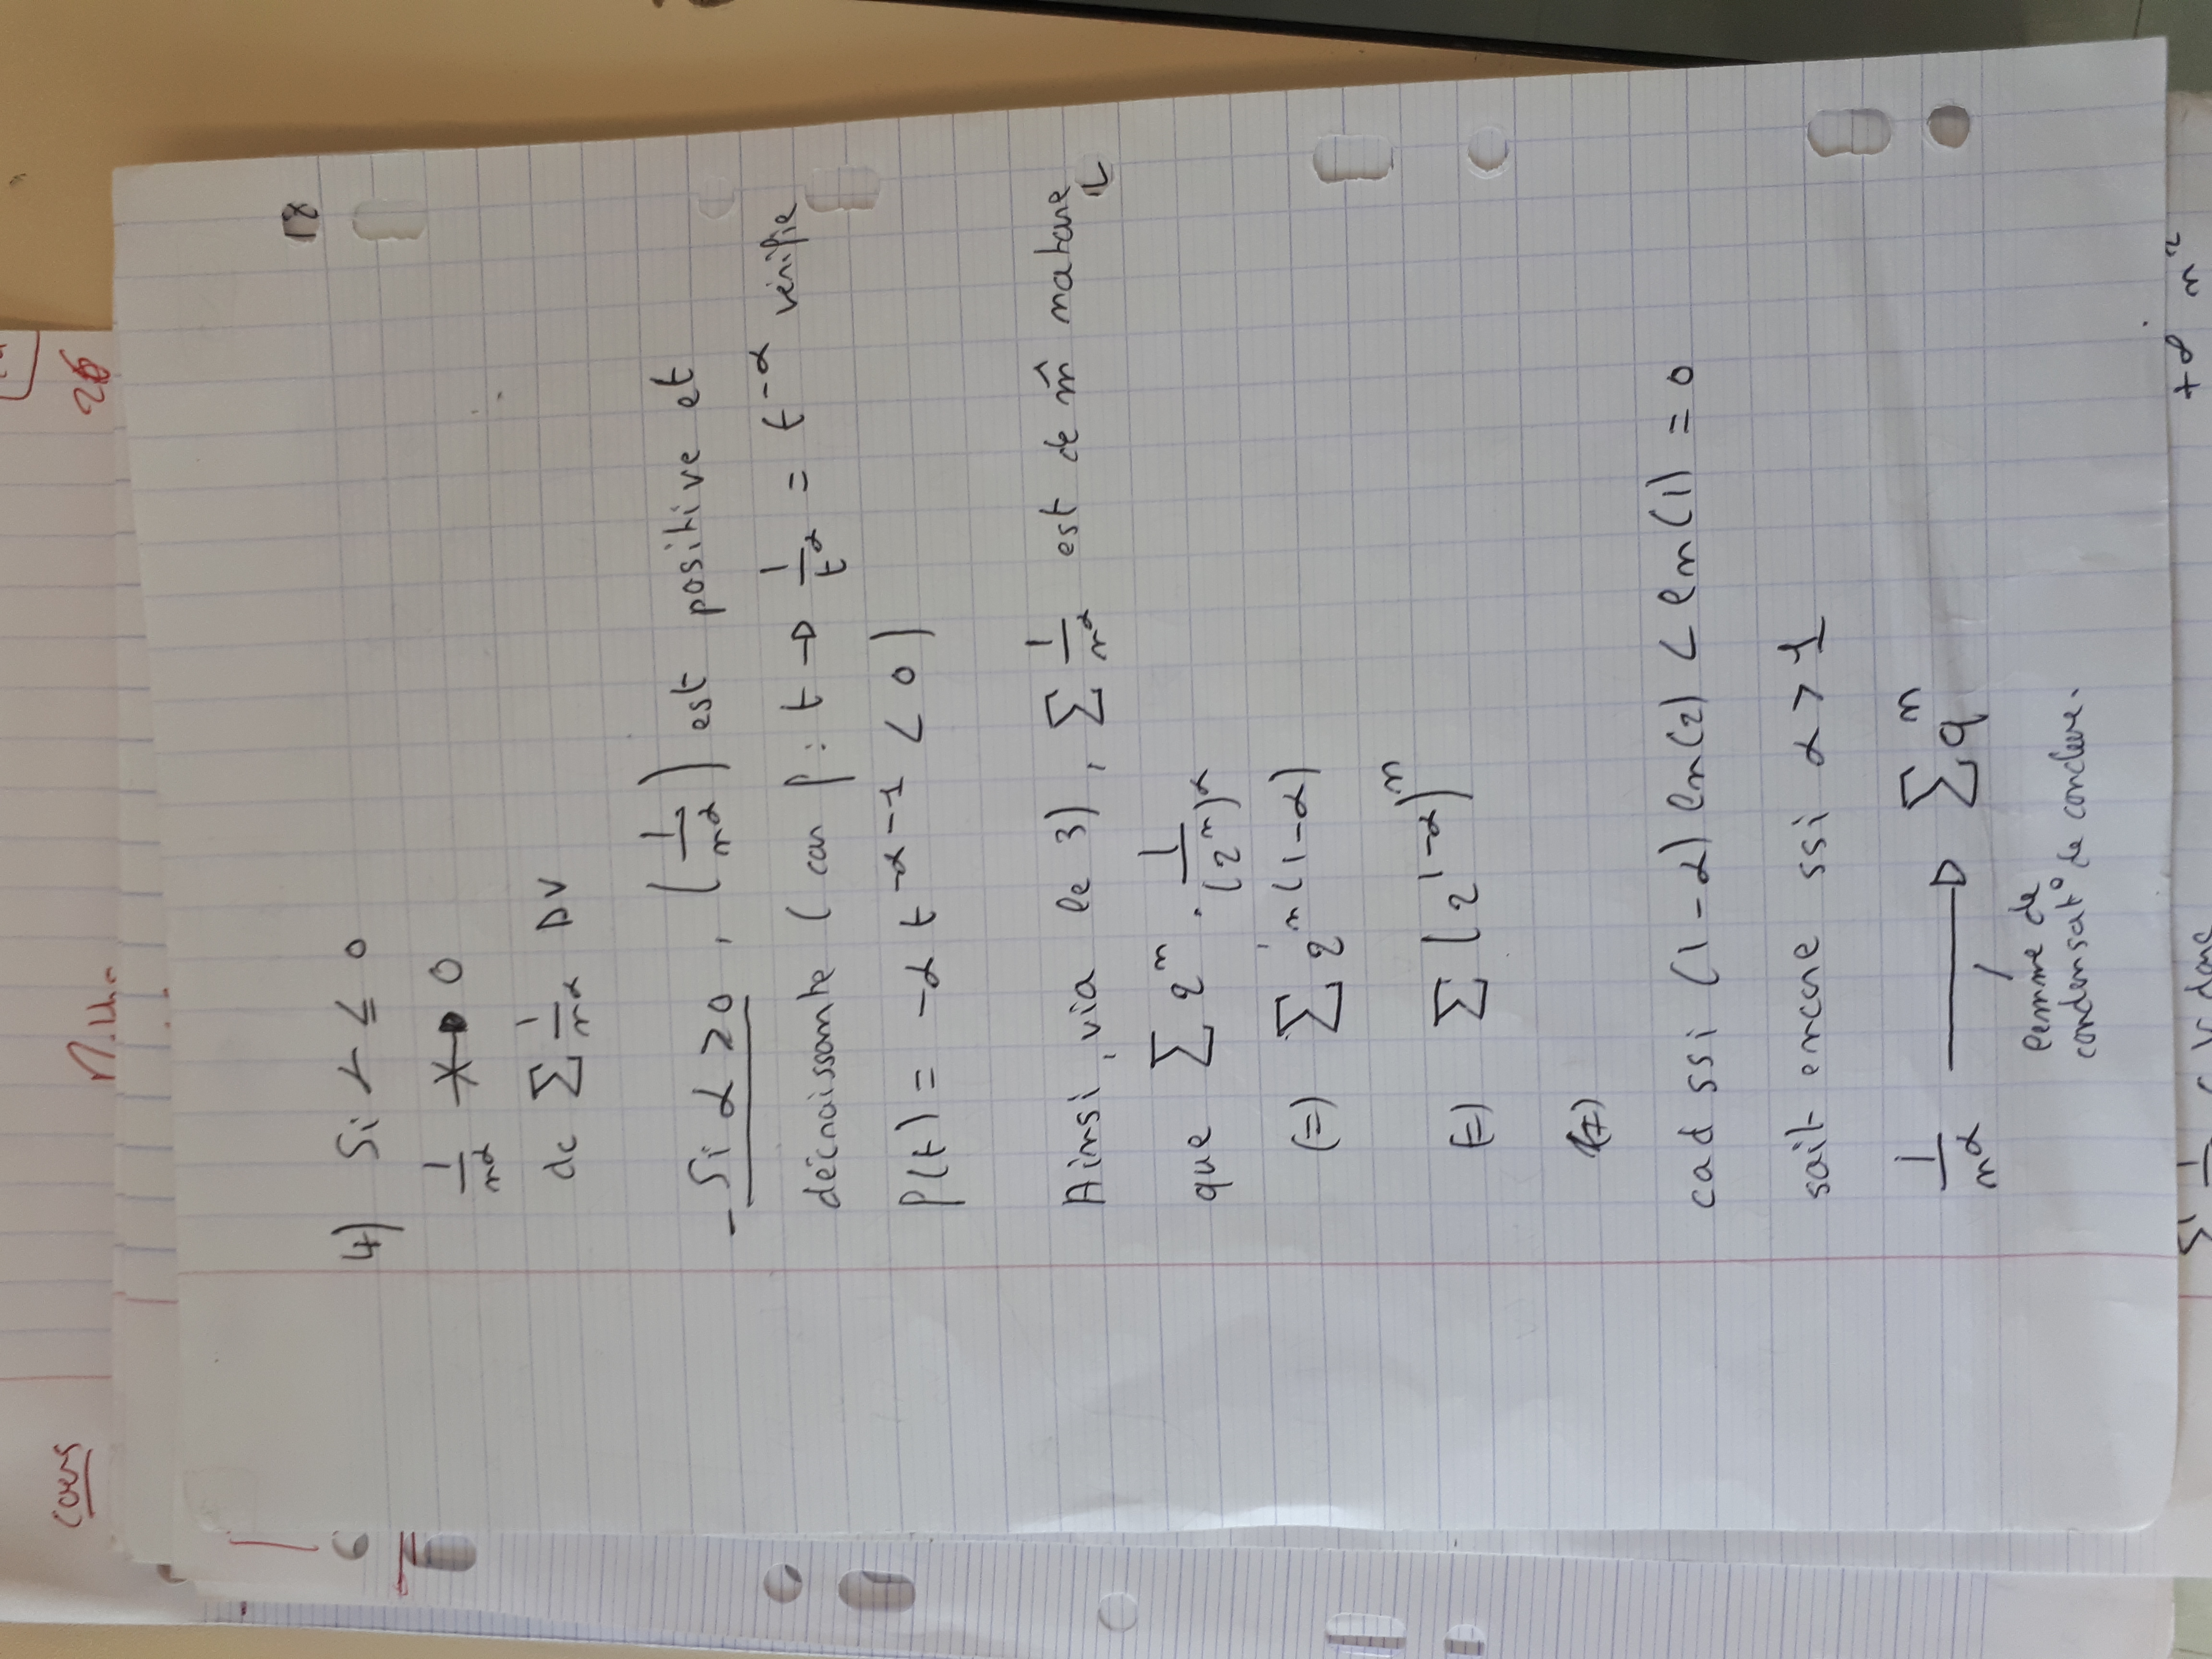 cours
26
6
18
4) Si α ≤ 0
1/n^α ↛ 0
dc ∑ 1/n^α DV
- Si α ≥ 0, (1/n^α) est positive et
décroissante (car f : t → 1/t^α = t^{-α} vérifie
f(t) = -α t^{-α-1} < 0)
Ainsi, via le 3), ∑ 1/n^α est de m̂ nature
que ∑ 2^n . 1/(2^n)^α
(=) ∑ 2^{n(1-α)}
(=) ∑ (2^{1-α})^n
(=)
cad ssi (1-α) ln(2) < ln(1) = 0
soit encore ssi α > 1
1/n^α ⟶ ∑ q^n
lemme de
condensat° de conclure.
∑ 1 CV donc
+∞ n²